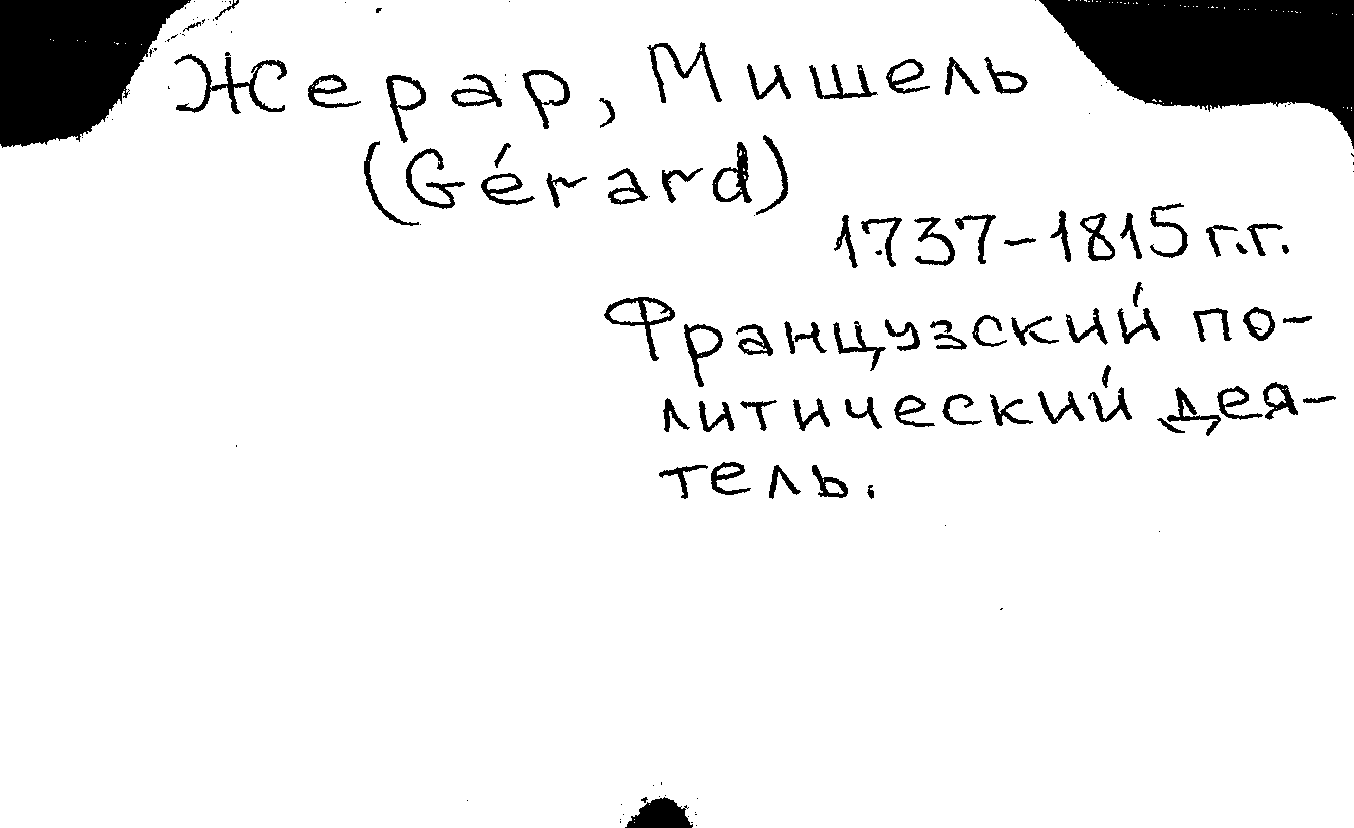 Жерар, Мишель
(Gérard)
1737-1815 г.г.
Французский по-
литический дея-
тель.